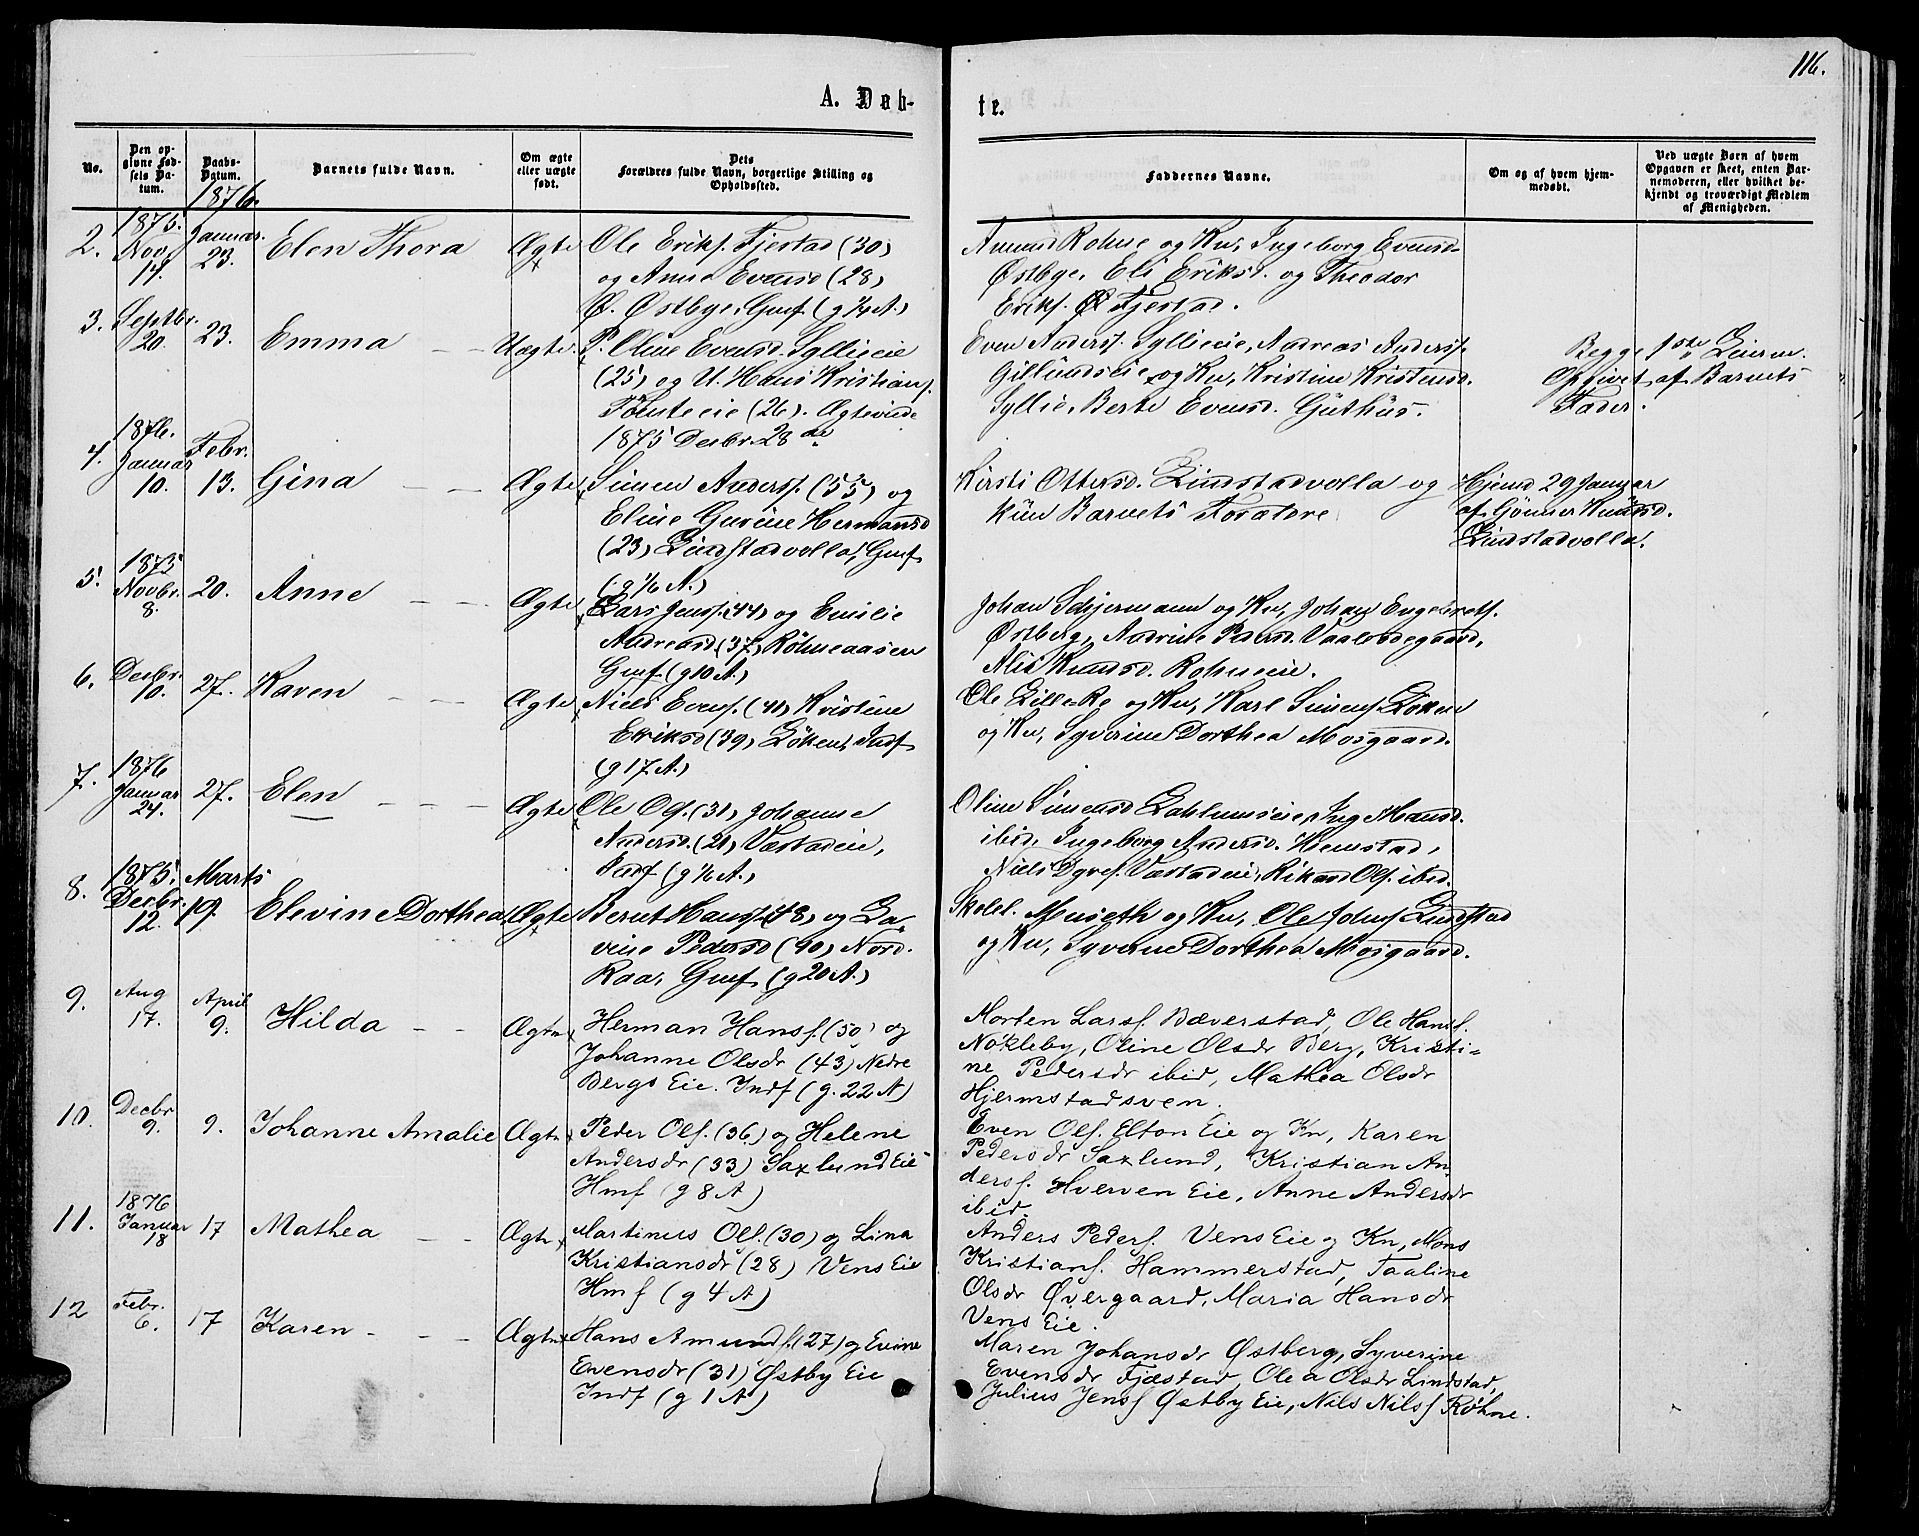 116.
A. Døb-
te.
No.
Den op-
givne Fød-
sels Da-
tum.
Daabs-
Datum.
Barnets fulde Navn.
Om ægte
eller uægte
født.
Dets
Forældres fulde Navn, borgerlige Stilling og
Opholdssted.
Faddernes Navne.
Om og af hvem hjem-
medøbt.
Ved uægte Børn af hvem
Opgaven er skeet, enten Bar-
nemoderen, eller hvilket be-
kjendt og troværdigt Medlem
af Menigheden.
1876.
2.
1875.
Nov.
14.
Januar.
23.
Elen Thora
Ægte
Ole Eriks. Fjestad (30)
og Anne Evensd (28)
Ø. Østbye, Gmf. (g ¼ A)
Amund Rohne og Kv, Ingeborg Evensd.
Østbye, Eli Eriksd. og Theodor
Eriks. Fjestad.
3.
Septbr.
20.
23.
Emma
Uægte.
P. Oline Evensd. Syllieie
(25) og U. Hans Kristians.
Tomteeie (26). Ægteviede
1875 Decbr. 28de
Even Anders. Syllieie, Andreas Anders.
Gillundseie og Kv, Kristine Kristensd.
Syllie, Berte Evensd. Guthus.
Begge 1ste Leierm.
Opgivet af Barnets
Fader.
4.
1876.
Januar
10.
Febr.
13.
Gina
Ægte
Simen Anders. (55) og
Eline Gurine Hermansd
(23) Lindstadvolla, Gmf
(g 1/6 A)
Kirsti Ottersd. Lindstadvolla og
kun Barnets Forældre
Hjemd 29 Januar
af Gunner Knudsd.
Lindstadvolla.
5.
1875
Novbr.
8.
20.
Anne
Ægte
Lars Jens. (44) og Emilie
Andreasd (37) Rohneaasen
Gmf. (g 10 A)
Johan Schjermann og Kv, Johan Engebrets.
Østberg, Andrine Pedersd. Vaalerødegaard,
Alis Knudsd. Rohneeie.
6.
Decbr.
10.
27.
Karen
Ægte
Niels Evens. (41) Kristine
Eriksd (39) Løken, Indf
(g 17 A)
Ole Lille-Re og Kv, Karl Simens. Løken
og Kv, Syverine Dorthea Mosgaard.
7.
1876
Januar
24.
27.
Elen
Ægte
Ole Ols. (31) Johanne
Andersd. (21) Væstadeie,
Indf (g ½ A)
Oline Simensd Lahlumseie, Ing Hansd.
ibid, Ingeborg Andersd. Hemstad,
Niels Dyres. Væstadeie, Rikard Ols. ibid.
8.
1875.
Decbr.
12.
Marts
19.
Elevine Dorthea
Ægte
Bernt Hans. (48) og La-
vine Pedersd (40) Nord-
Raa, Gmf (g 20 A)
Skolel. Museth og Kv, Ole Johns. Lindstad
og Kv, Syverine Dorthea Mosgaard.
9.
Aug
17.
April
9.
Hilda
Ægte
Herman Hansf. (50) og
Johanne Olsdr (43) Nedre
Bergs Eie. Indf (g. 22 A)
Morten Larsf. Bæverstad, Ole Hansf.
Nøkleby, Oline Olsdr Berg, Kristi-
ne Pedersdr ibid, Mathea Olsdr
Hjermstadsven.
10.
Decbr
9.
9.
Johanne Amalie
Ægte
Peder Olsf. (36) og Helene
Andersdr (33) Saxlund Eie
Hmf (g 8 A)
Even Olsf. Elton Eie og Kn, Karen
Pedersdr Saxlund, Kristian An-
dersf. Hverven Eie, Anne Andersdr
ibid.
11.
1876
Januar
18
17
Mathea
Ægte
Martinus Olsf. (30) og Lina
Kristiansdr (28) Vens Eie
Hmf (g 4 A)
Anders Pedersf. Vens Eie og Kn, Mons
Kristianf. Hammerstad, Taaline
Olsdr Øvergaard, Maria Hansdr
Vens Eie.
12
Febr.
6.
17
Karen
Ægte
Hans Amundsf. (27) og Evine
Evensdr (31) Østby Eie
Indf (g 1 A)
Maren Johansdr Østberg, Syverine
Evensdr Fjæstad, Olea Olsdr Lindstad,
Julius Jensf Østby Eie, Nils Nilsf Røhne.